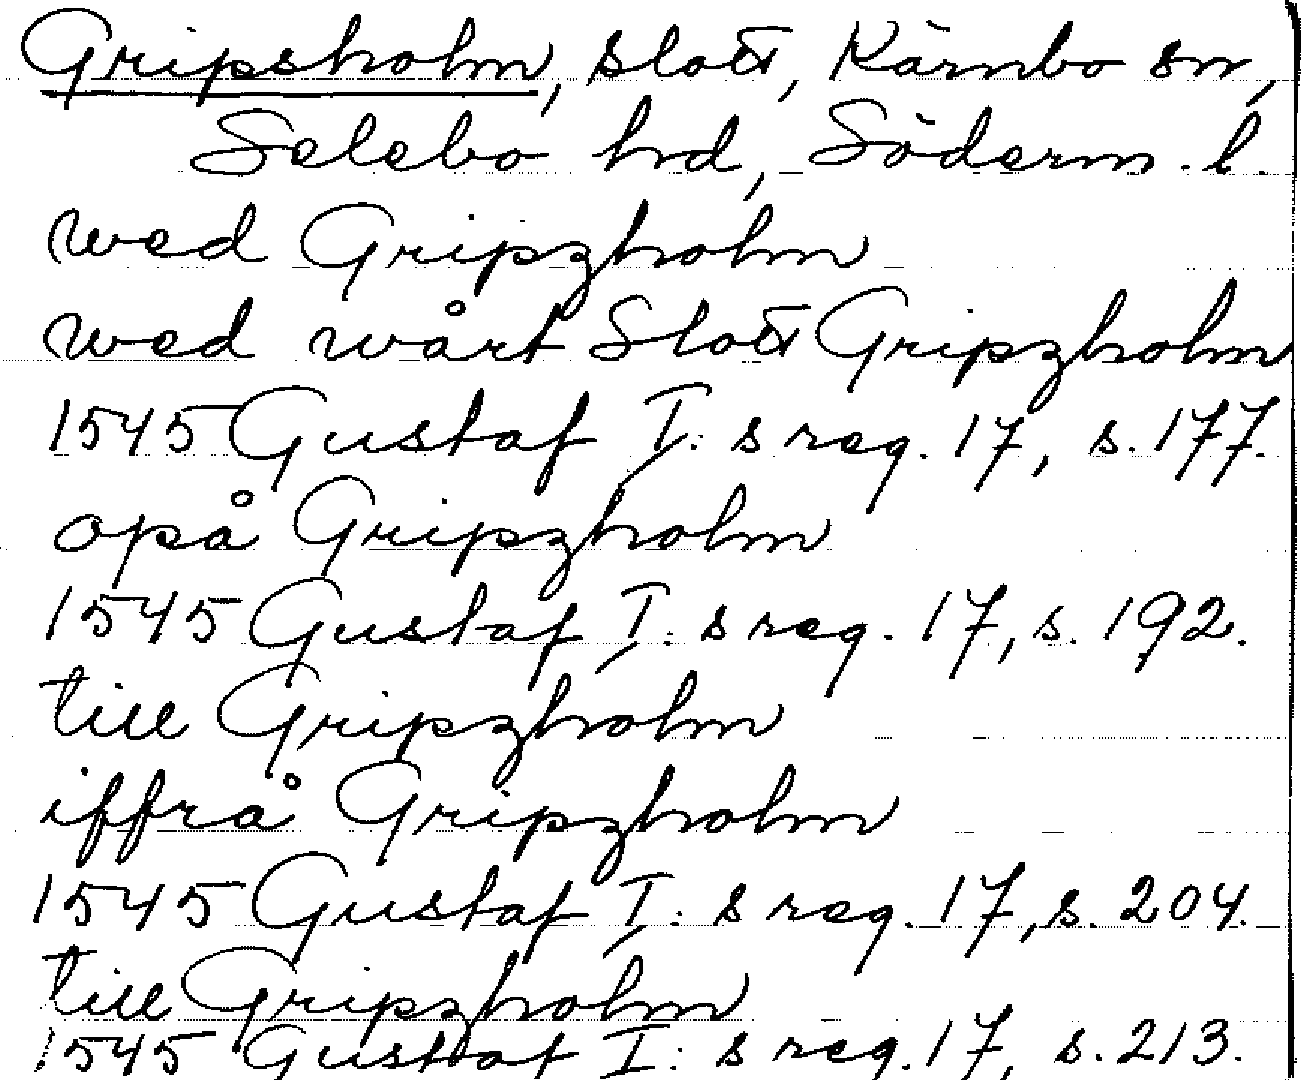 Gripsholm, slott, Kärnbo sn,
Selebo hd, Söderm. l.
wed Gripzholm
wed wårt Slott Gripzholm
1545 Gustaf I:s reg. 17, s. 177.
opå Gripzholm
1545 Gustaf I:s reg. 17, s. 192.
till Gripzholm
iffrå Gripzholm
1545 Gustaf I:s reg. 17, s. 204.
till Gripzholm
1545 Gustaf I:s reg. 17, s. 213.